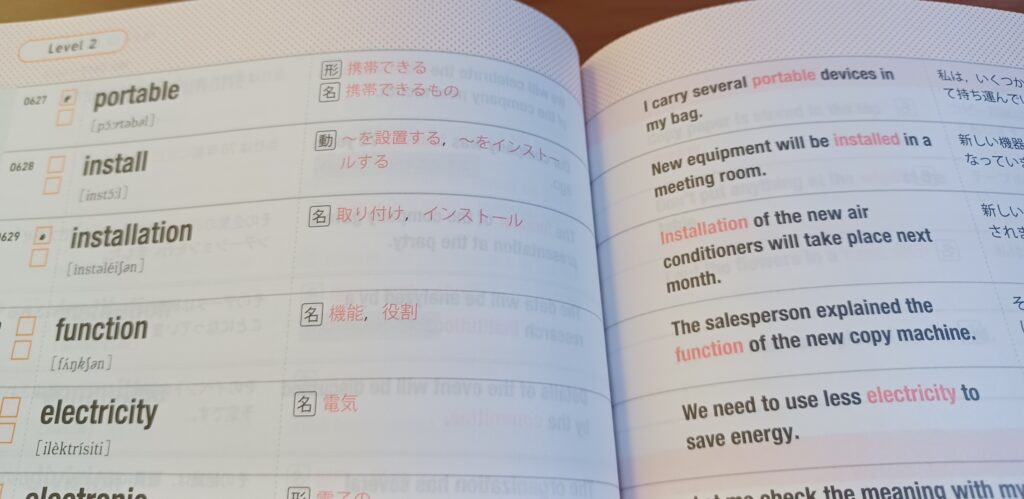 Level 2
0627
portable
[pɔ́ːrtəbəl]
形 携帯できる
名 携帯できるもの
I carry several portable devices in
my bag.
私は，いくつか
て持ち運んでい
0628
install
[instɔ́ːl]
動 〜を設置する，〜をインストー
ルする
New equipment will be installed in a
meeting room.
新しい機器
なってい
0629
installation
[instəléiʃən]
名 取り付け，インストール
Installation of the new air
conditioners will take place next
month.
新しい
され
function
[fʌ́ŋkʃən]
名 機能，役割
The salesperson explained the
function of the new copy machine.
そ
electricity
[ilèktrísiti]
名 電気
We need to use less electricity to
save energy.
electronic
形 電子の
me check the meaning with my